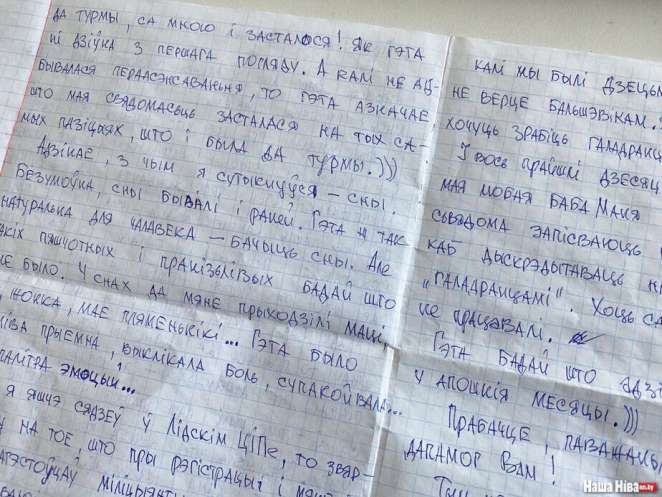 ДА ТУРМЫ, СА МНОЮ І ЗАСТАЛОСЯ! ЯК ГЭТА
НІ ДЗІЎНА З ПЕРШАГА ПОГЛЯДУ. А КАЛІ НЕ АД-
БЫВАЛАСЯ ПЕРААСЭНСАВАНЬНЯ, ТО ГЭТА АЗНАЧАЕ
ШТО МАЯ СВЯДОМАСЬЦЬ ЗАСТАЛАСЯ НА ТЫХ СА-
МЫХ ПАЗІЦЫЯХ, ШТО І БЫЛА ДА ТУРМЫ.)))
АДЗІНАЕ, З ЧЫМ Я СУТЫКНУЎСЯ – СНЫ.
БЕЗУМОЎНА, СНЫ БЫВАЛІ І РАНЕЙ. ГЭТА Ж ТАК
НАТУРАЛЬНА ДЛЯ ЧАЛАВЕКА – БАЧЫЦЬ СНЫ. АЛЕ
ПЯШЧОТНЫХ І ПРАНІЗЬЛІВЫХ БАДАЙ ШТО
НЕ БЫЛО. У СНАХ ДА МЯНЕ ПРЫХОДЗІЛІ МАЦІ,
ЖОНКА, МАЕ ПЛЯМЕНЬНІКІ... ГЭТА БЫЛО
ПРЫЕМНА, ВЫКЛІКАЛА БОЛЬ, СУПАКОЙВАЛА...
ПАЛІТРА ЭМОЦЫЙ...
Я ЯШЧЭ СЯДЗЕЎ У ЛІДСКІМ ЦІПе, ТО ЗВЯР-
НА ТОЕ, ШТО ПРЫ РЭГІСТРАЦЫІ
КАЛІ МЫ БЫЛІ ДЗЕЦЬМ
НЕ ВЕРЦЕ БАЛЬШЭВІКАМ.
ХОЧУЦЬ ЗРАБІЦЬ ГАЛАДРАНЦ
І ВОСЬ ПРАЙШЛІ ДЗЕСЯЦ
МАЯ ЛЮБАЯ БАБА МАНЯ
СЬВЯДОМА ЗАПІСВАЮЦЬ
КАБ ДЫСКРЭДЫТАВАЦЬ Н
„ГАЛАДРАНЦАМІ". ХОЦЬ СА
НЕ ПРАЦАВАЛ.
ГЭТА БАДАЙ ШТО АДЗІ
У АПОШНІЯ МЕСЯЦЫ.)))
ПРАБАЧЦЕ, ПАВАЖАНЫ
ДАПАМОГ ВАМ!
Наша Ніва nn.by